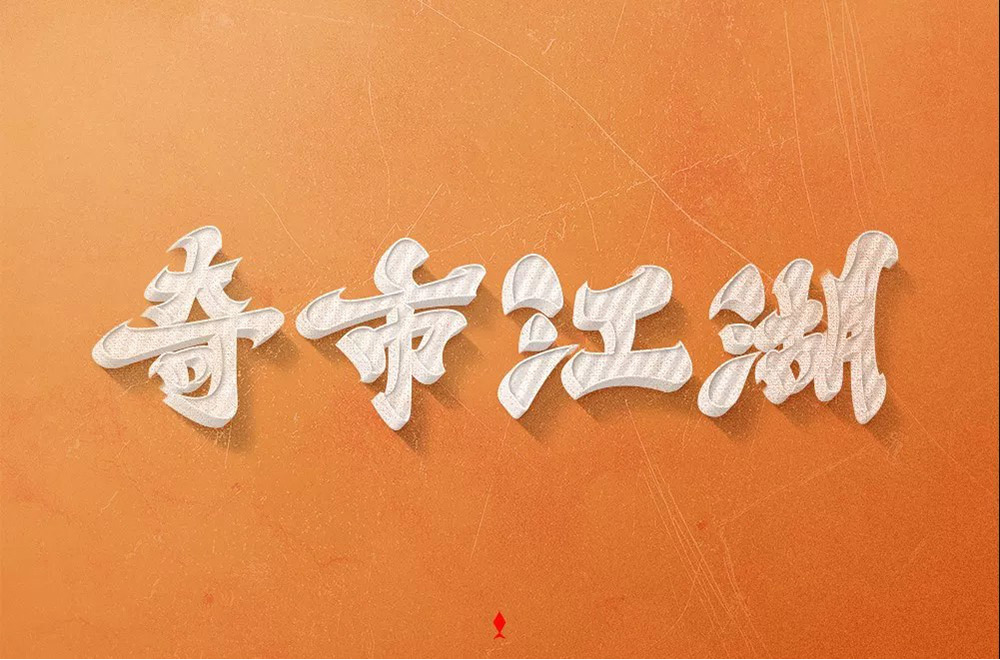 奇市江湖